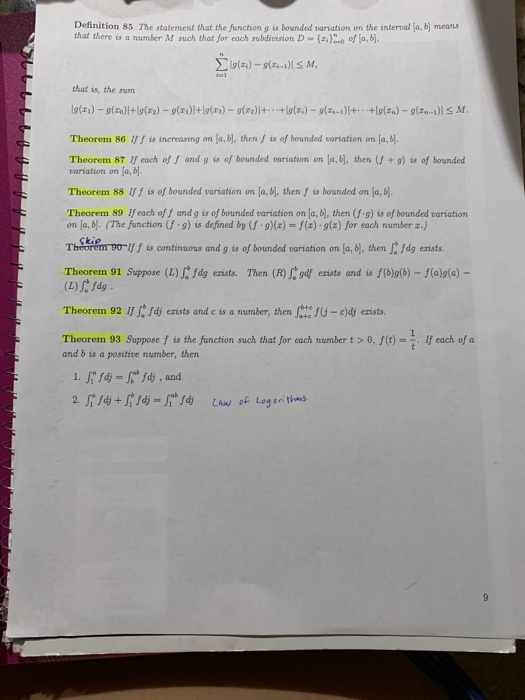 Definition 85 The statement that the function g is bounded variation on the interval [a, b] means
that there is a number M such that for each subdivision D = {x_i}_{i=0}^n of [a, b],
∑_{i=1}^n |g(x_i) − g(x_{i−1})| ≤ M,
that is, the sum
|g(x_1) − g(x_0)|+|g(x_2) − g(x_1)|+|g(x_3) − g(x_2)|+···+|g(x_i) − g(x_{i−1})|+···+|g(x_n) − g(x_{n−1})| ≤ M.
Theorem 86 If f is increasing on [a, b], then f is of bounded variation on [a, b].
Theorem 87 If each of f and g is of bounded variation on [a, b], then (f + g) is of bounded
variation on [a, b].
Theorem 88 If f is of bounded variation on [a, b], then f is bounded on [a, b].
Theorem 89 If each of f and g is of bounded variation on [a, b], then (f·g) is of bounded variation
on [a, b]. (The function (f · g) is defined by (f · g)(x) = f(x) · g(x) for each number x.)
Skip
Theorem 90 If f is continuous and g is of bounded variation on [a, b], then ∫_a^b fdg exists.
Theorem 91 Suppose (L) ∫_a^b fdg exists. Then (R) ∫_a^b gdf exists and is f(b)g(b) − f(a)g(a) −
(L) ∫_a^b fdg .
Theorem 92 If ∫_a^b fdj exists and c is a number, then ∫_{a+c}^{b+c} f(j − c)dj exists.
Theorem 93 Suppose f is the function such that for each number t > 0, f(t) = 1/t. If each of a
and b is a positive number, then
1. ∫_1^a fdj = ∫_b^{ab} fdj , and
2. ∫_1^a fdj + ∫_1^b fdj = ∫_1^{ab} fdj Law of Logorithms.
9